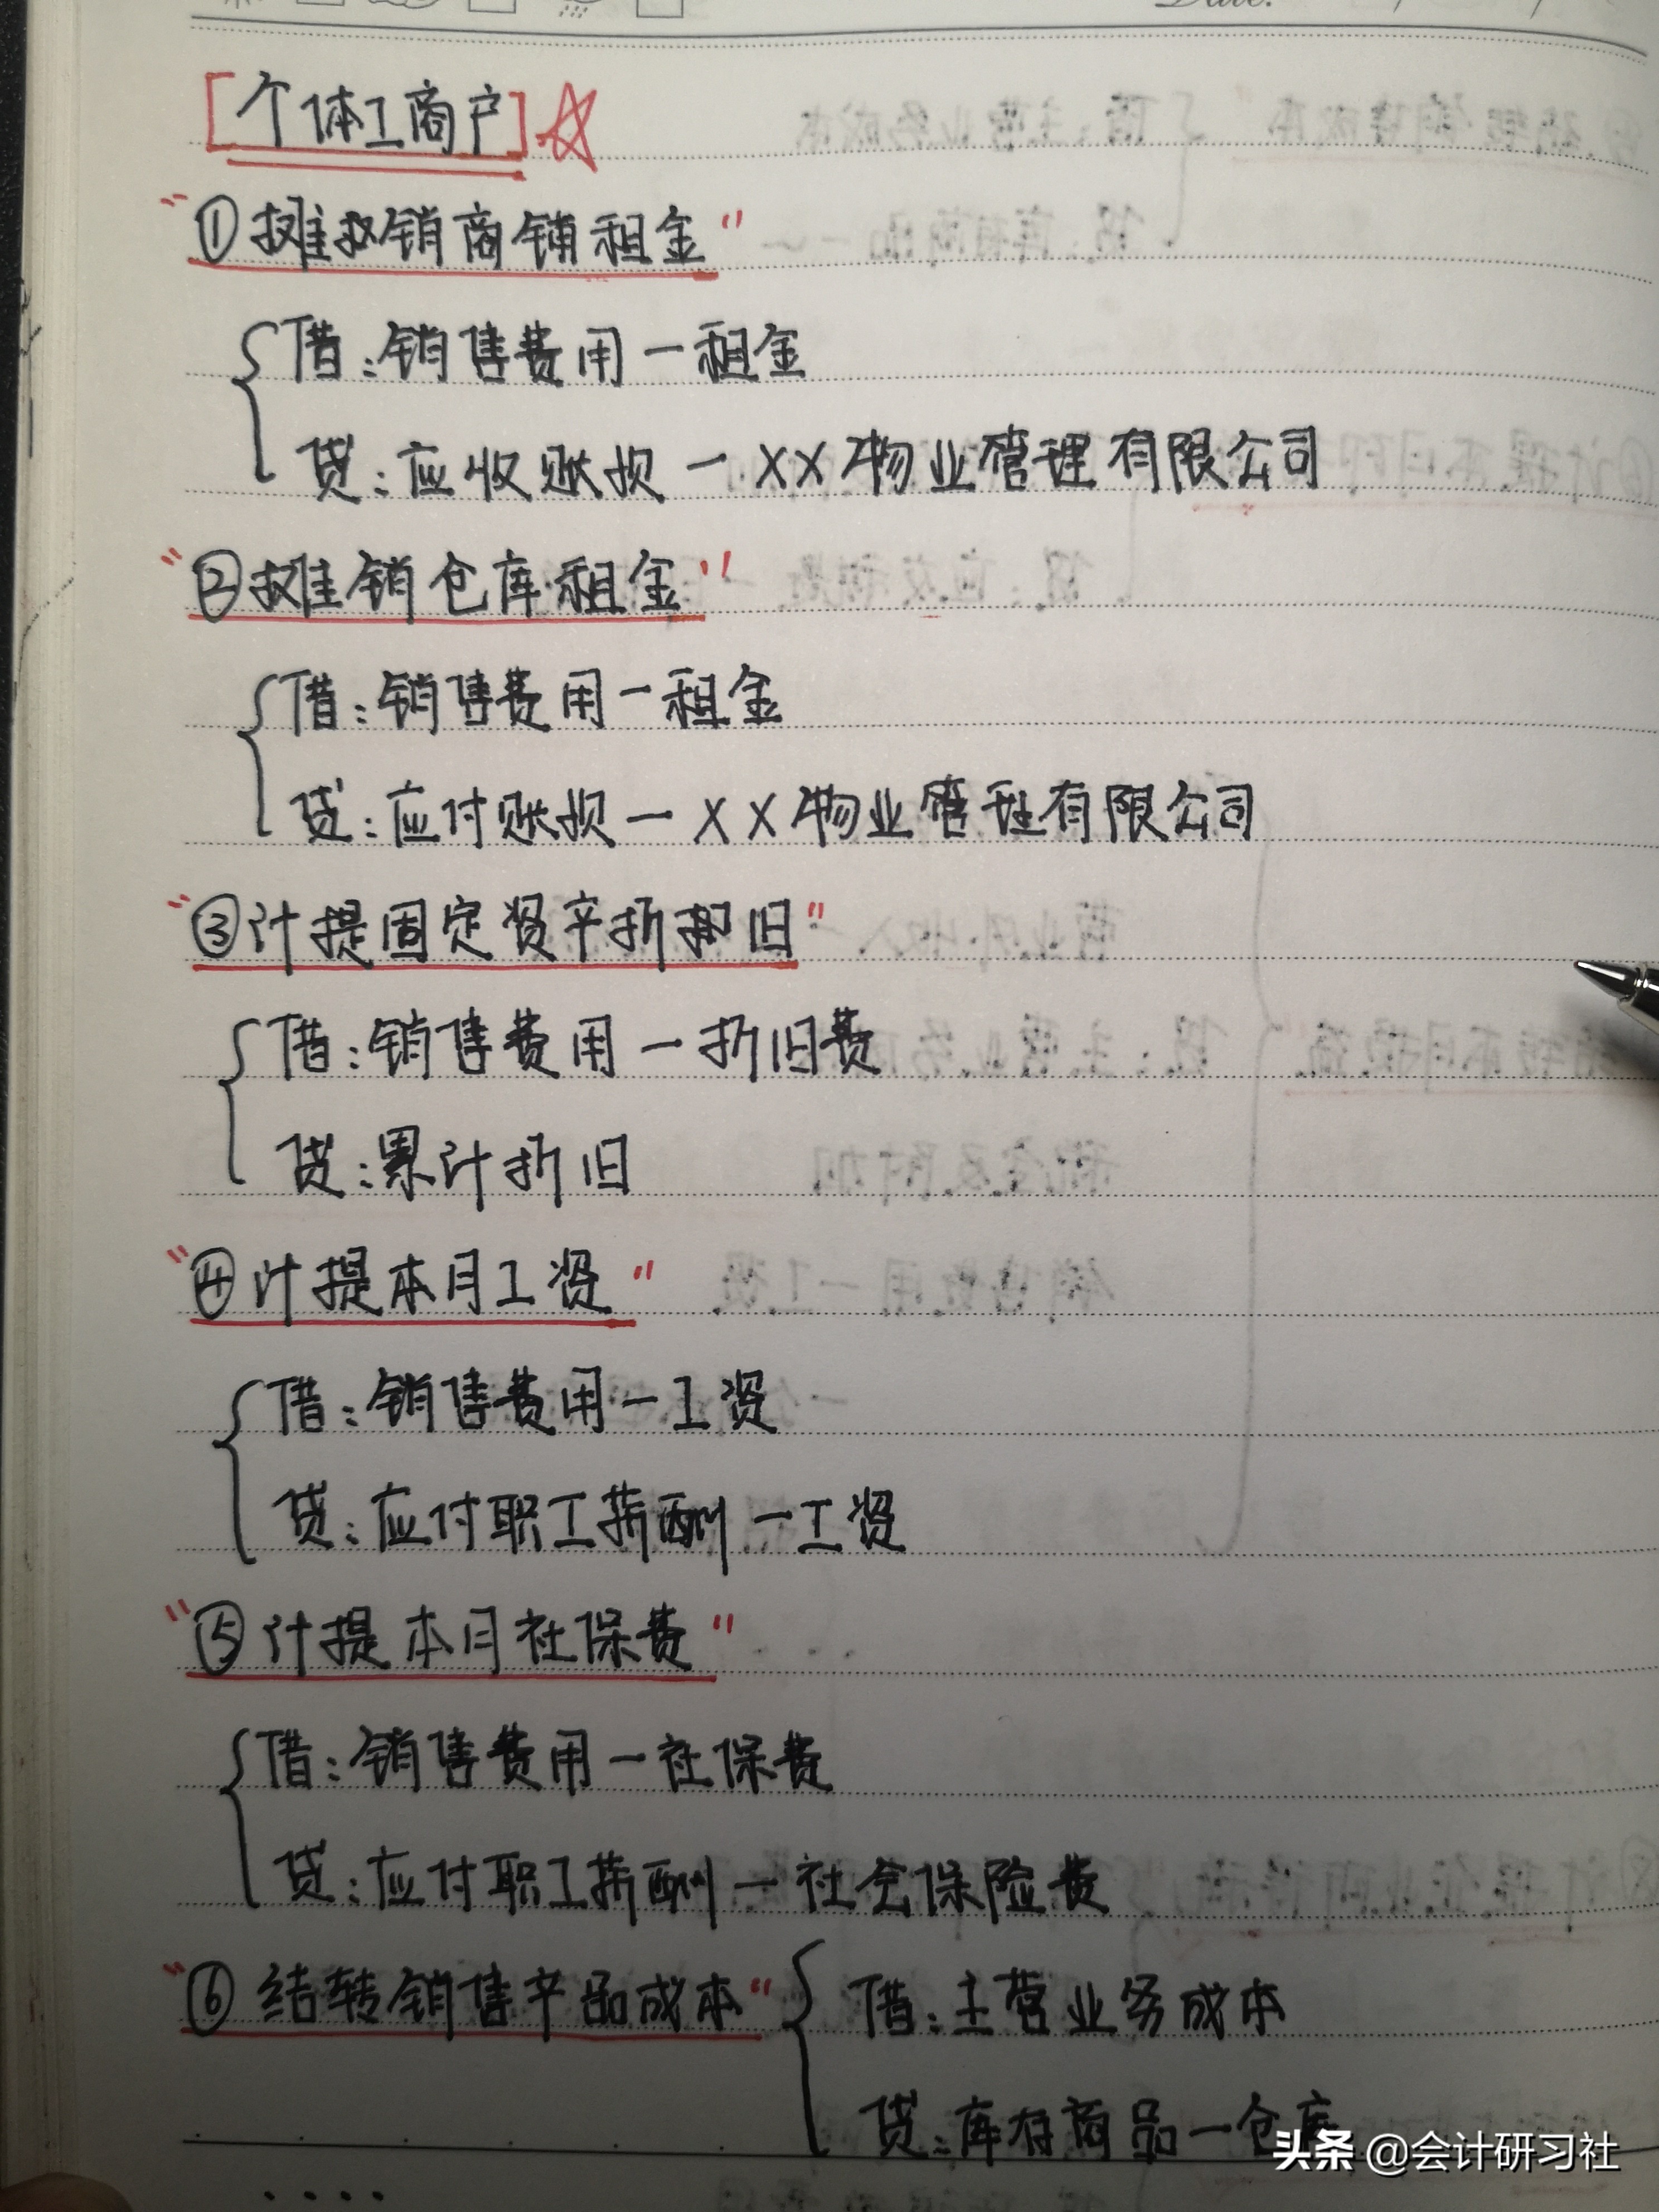 Date.
[个体工商户]
"①摊销商铺租金"
借:销售费用一租金
贷:应收账损一XX物业管理有限公司
"②摊销仓库租金"
借:销售费用一租金
贷:应付账损一XX物业管理有限公司
"③计提固定资产折旧"
借:销售费用一折旧费
贷:累计折旧
"④计提本月工资"
借:销售费用一工资
贷:应付职工薪酬一工资
"⑤计提本月社保费"
借:销售费用一社保费
贷:应付职工薪酬一社会保险费
"⑥结转销售产品成本" 借:主营业务成本
贷:库存商品一仓库
头条 @会计研习社